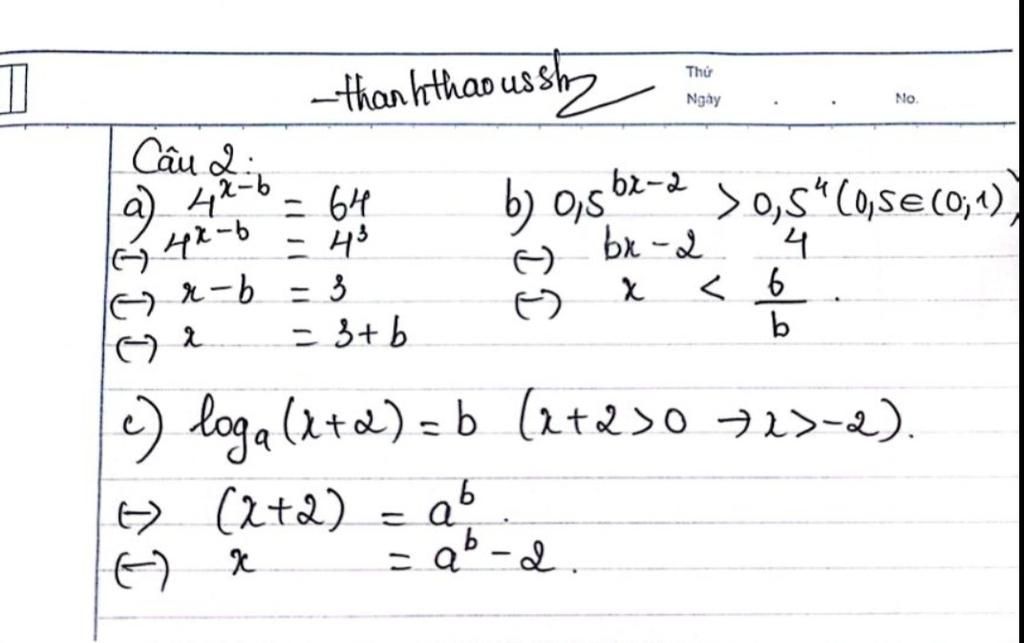 -thanhthaoussh
Thứ
Ngày . . No.
Câu 2:
a) 4^{x-b} = 64
(-) 4^{x-b} = 4^3
(-) x-b = 3
(-) x = 3+b
b) 0,5^{bx-2} > 0,5^4 (0,5∈(0;1)
(-) bx-2 4
(-) x < 6/b .
c) log_a(x+2) = b (x+2>0 → x>-2).
<-> (x+2) = a^b .
(-) x = a^b - 2 .